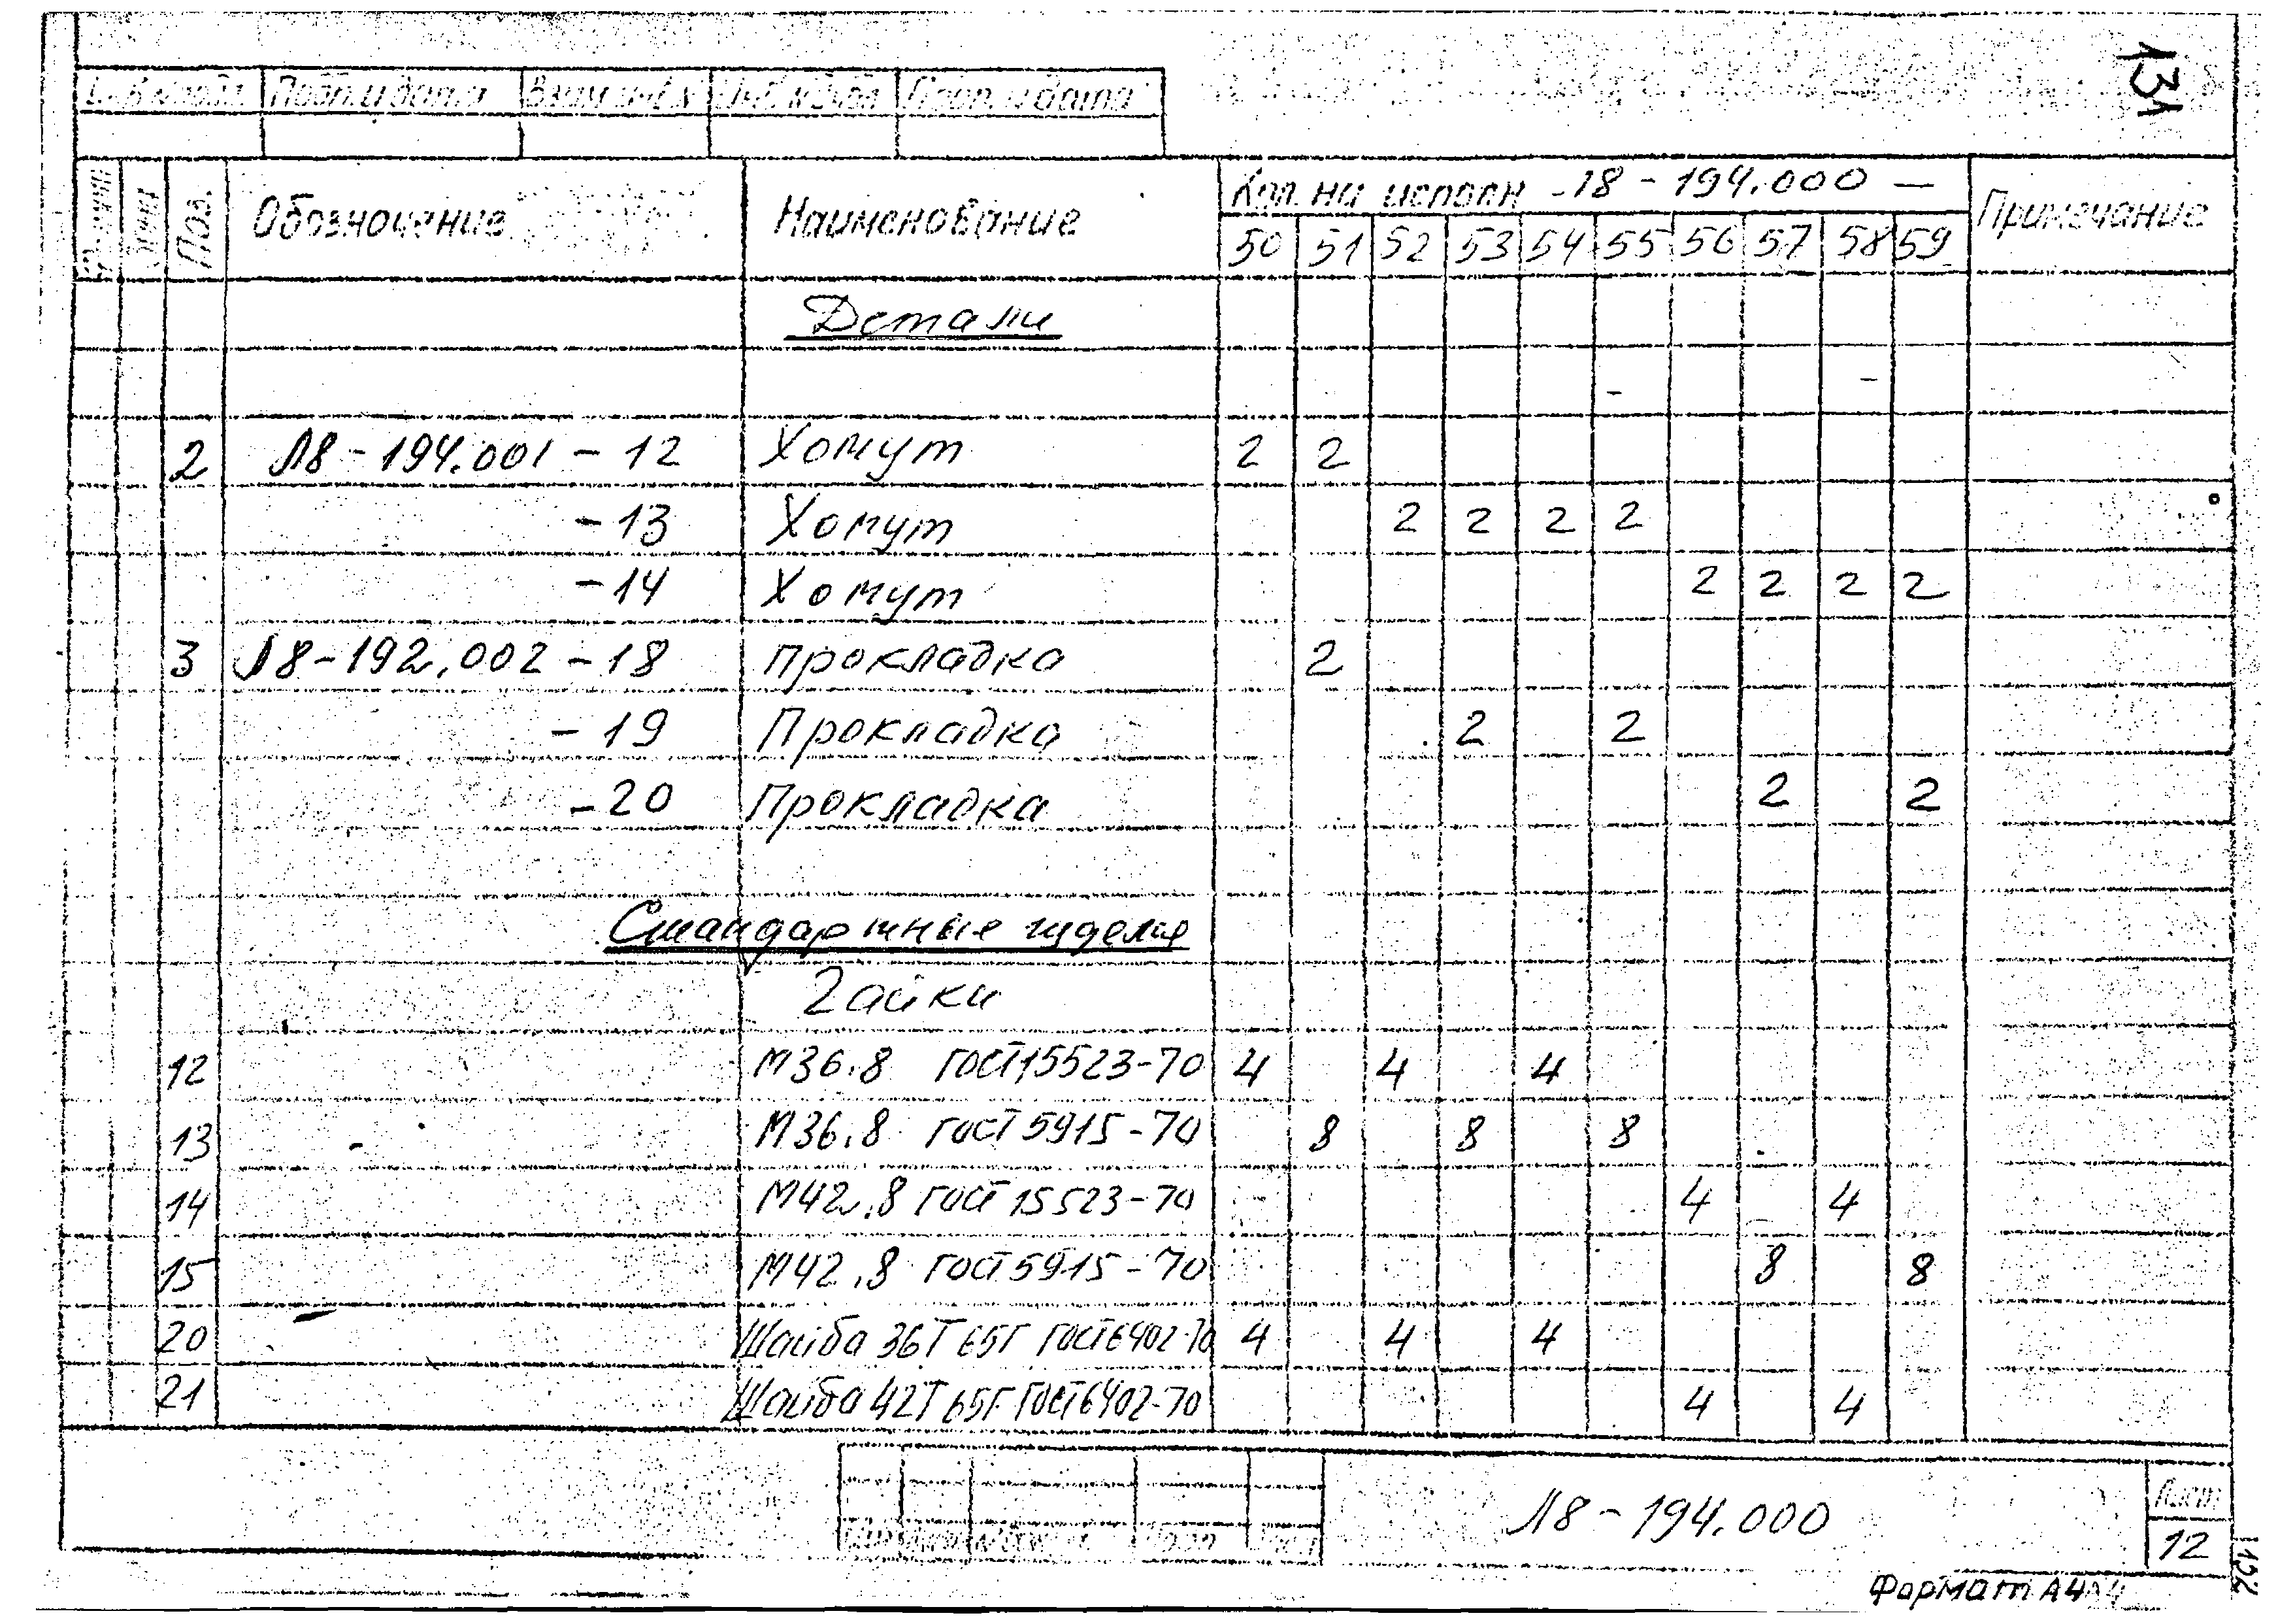 131
Инв. № подл. Подп. и дата Взам. инв. № Инв. № дубл. Подп. и дата
Поз. Обозначение Наименование Кол. на исполн -Л8-194.000 — Примечание
50 51 52 53 54 55 56 57 58 59
Детали
2 Л8-194.001-12 Хомут 2 2
-13 Хомут 2 2 2 2
-14 Хомут 2 2 2 2
3 Л8-192.002-18 Прокладка 2
-19 Прокладка 2 2
-20 Прокладка 2 2
Стандартные изделия
Гайки
12 М36.8 ГОСТ15523-70 4 4 4
13 М36.8 ГОСТ5915-70 8 8 8
14 М42.8 ГОСТ 15523-70 4 4
15 М42.8 ГОСТ5915-70 8 8
20 Шайба 36Т 65Г ГОСТ6402-70 4 4 4
21 Шайба 42Т 65Г ГОСТ6402-70 4 4
Л8-194.000
Лист
12
Формат А4